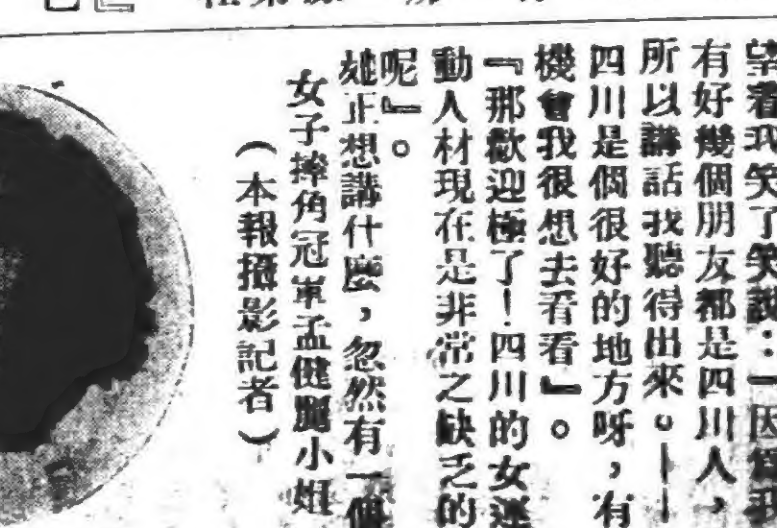 望着我笑了笑說：『因爲我
有好幾個朋友都是四川人，
所以講話我聽得出來。——
四川是個很好的地方呀，有
機會我很想去看看』。
『那歡迎極了！四川的女運
動人材現在是非常之缺乏的
呢』。
她正想講什麽，忽然有一個
女子摔角冠軍孟健麗小姐
（本報攝影記者）